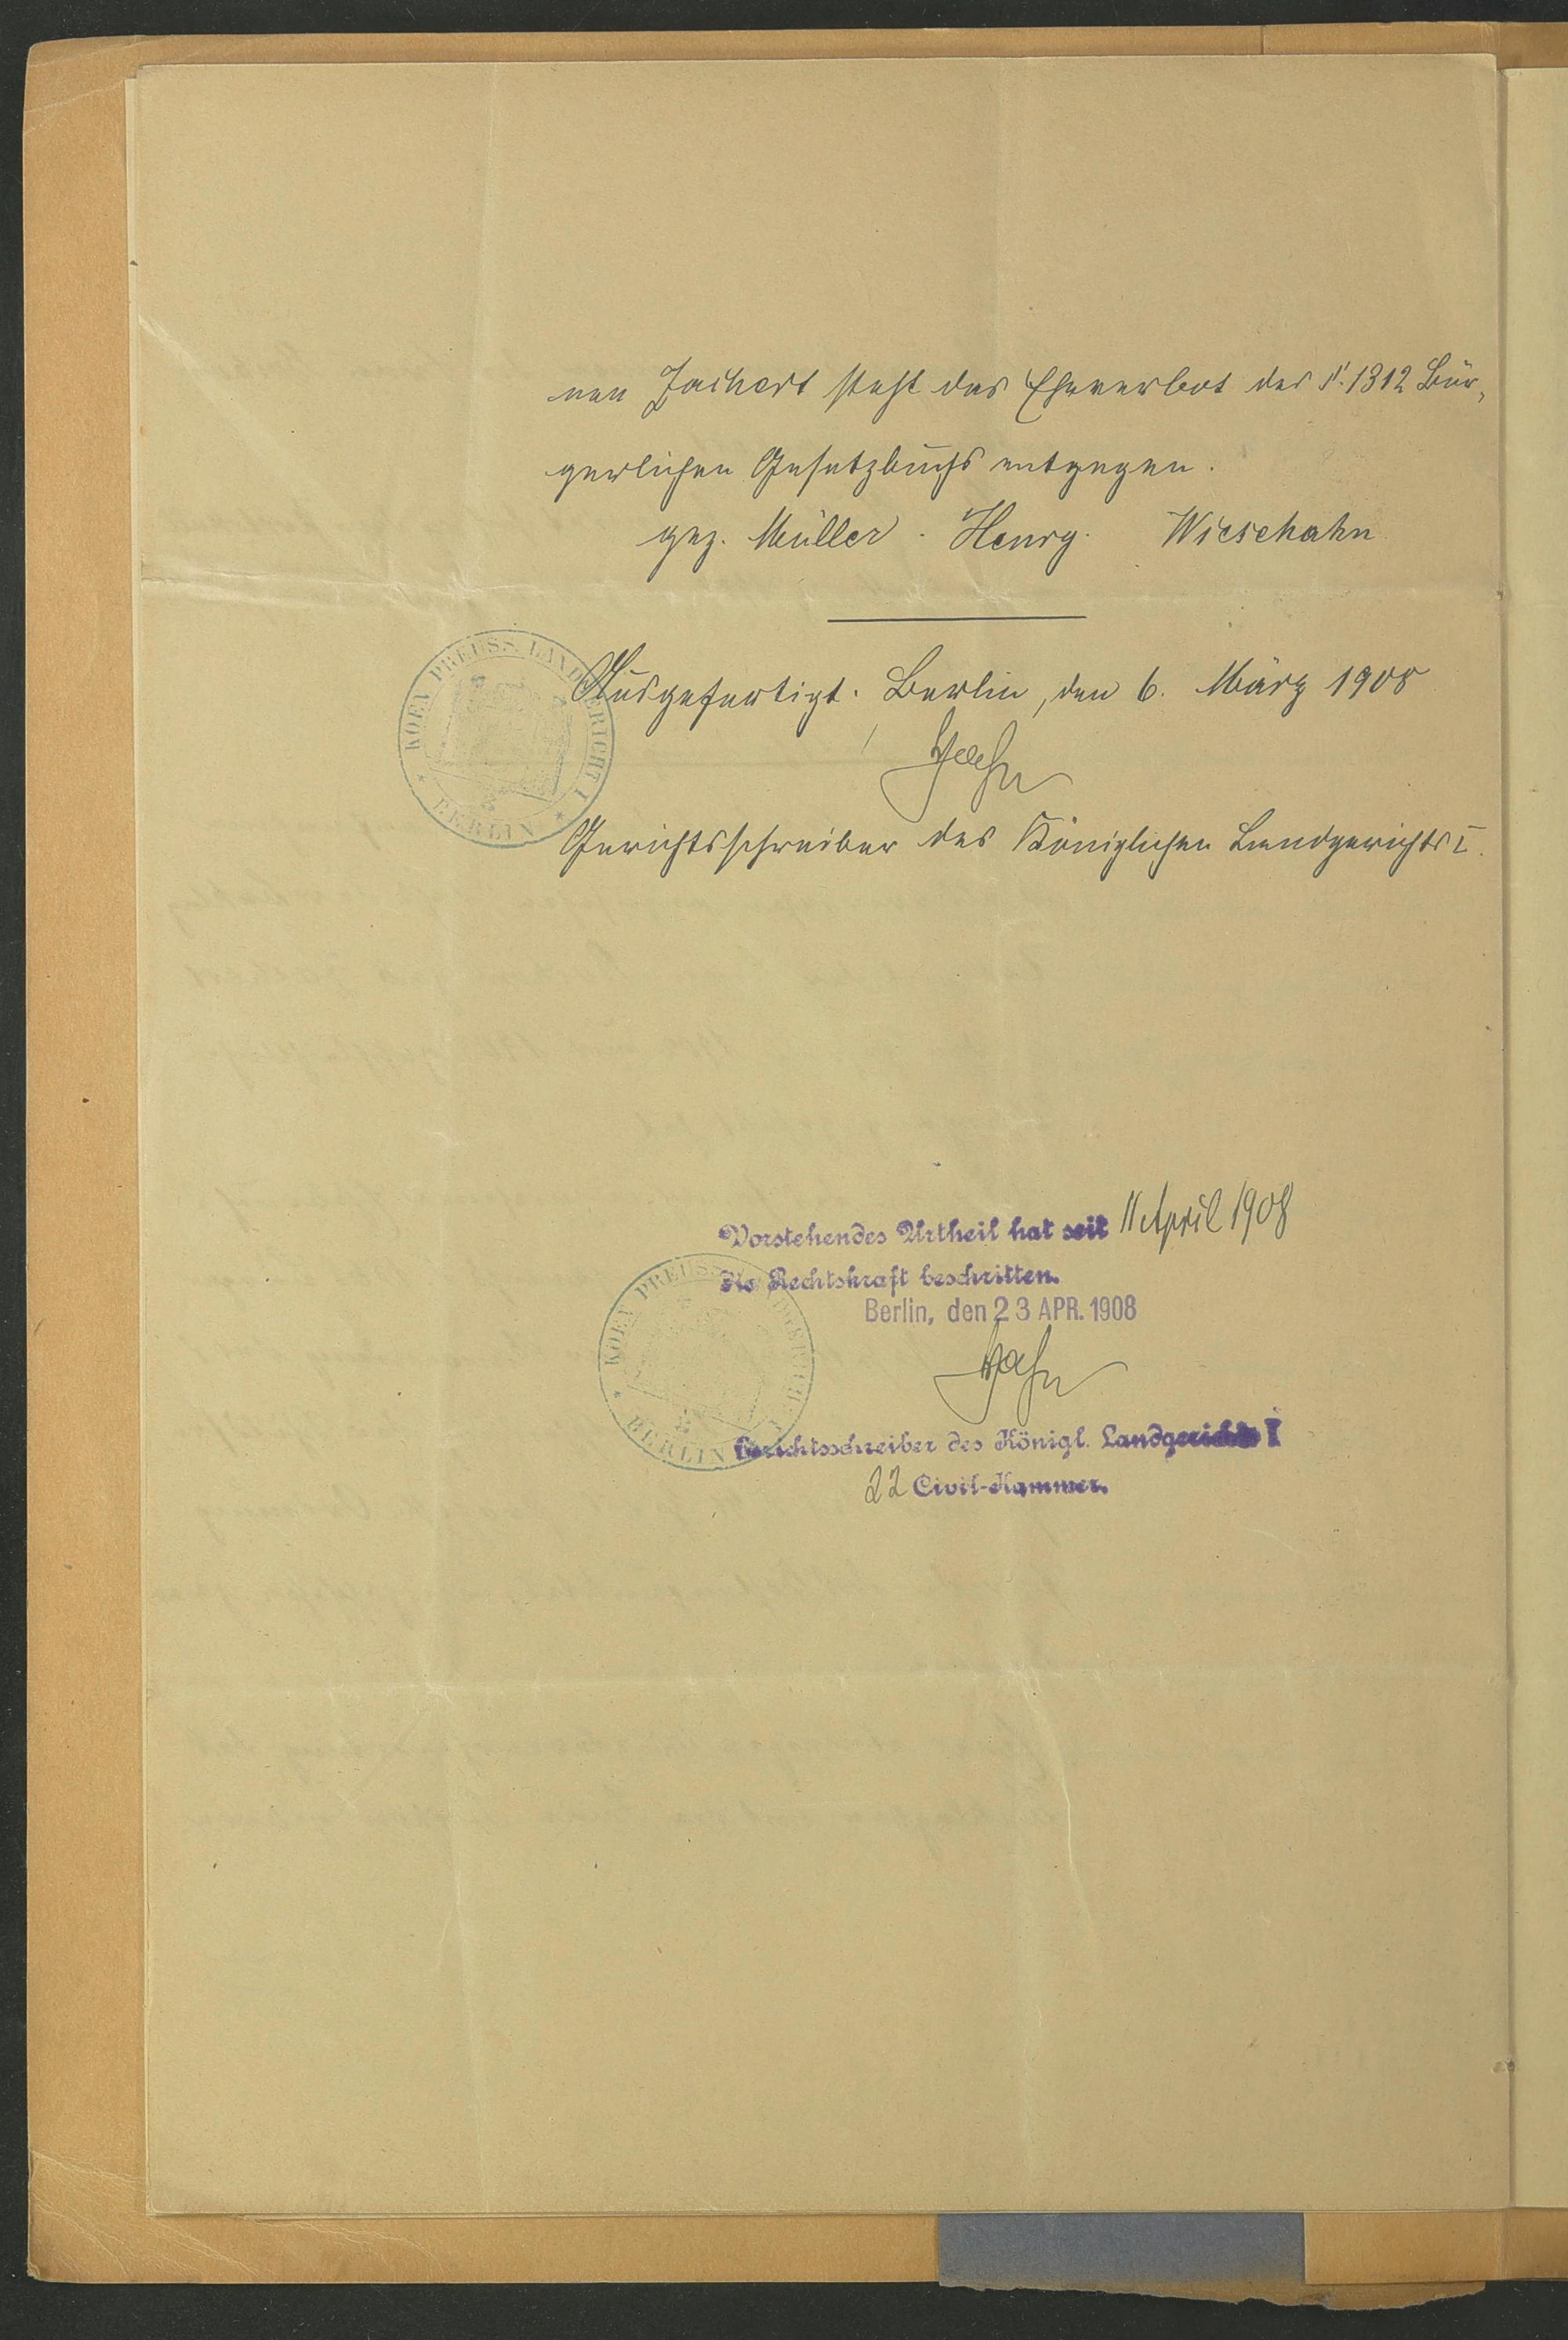 nen Jachert steht das Eheverbot des §. 1312 Bür-
gerlichen Gesetzbuchs entgegen.
gez. Müller. Henry. Wieschahn
KOEN. PREUSS. LANDGERICHT I * BERLIN *
Ausgefertigt. Berlin, den 6. März 1908
Hahn
Gerichtsschreiber des Königlichen Landgerichts I.
Vorstehendes Urtheil hat seit 11 April 1908
die Rechtskraft beschritten.
Berlin, den 23 APR. 1908
KOEN. PREUSS. LANDGERICHT I * BERLIN *
Hahn
Gerichtsschreiber des Königl. Landgerichts I
22 Civil-Kammer.